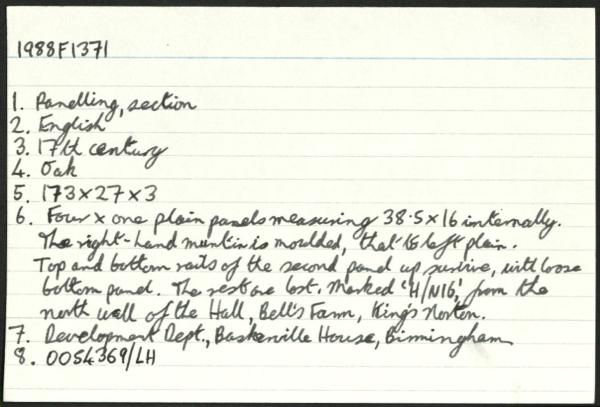 1988F1371
1. Panelling, section
2. English
3. 17th century
4. Oak
5. 173 x 27 x 3
6. Four x one plain panels measuring 38.5 x 16 internally.
The right-hand muntin is moulded, that to left plain.
Top and bottom rails of the second panel up survive, with loose
bottom panel. The rest are lost. Marked 'H/N16', from the
north wall of the Hall, Bell's Farm, King's Norton.
7. Development Dept., Baskerville House, Birmingham
8. 0054369/LH